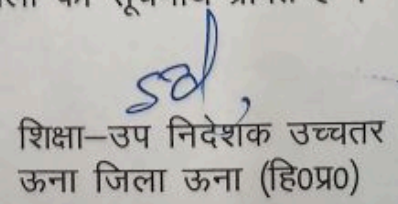 sd,
शिक्षा-उप निदेशक उच्चतर
ऊना जिला ऊना (हि०प्र०)